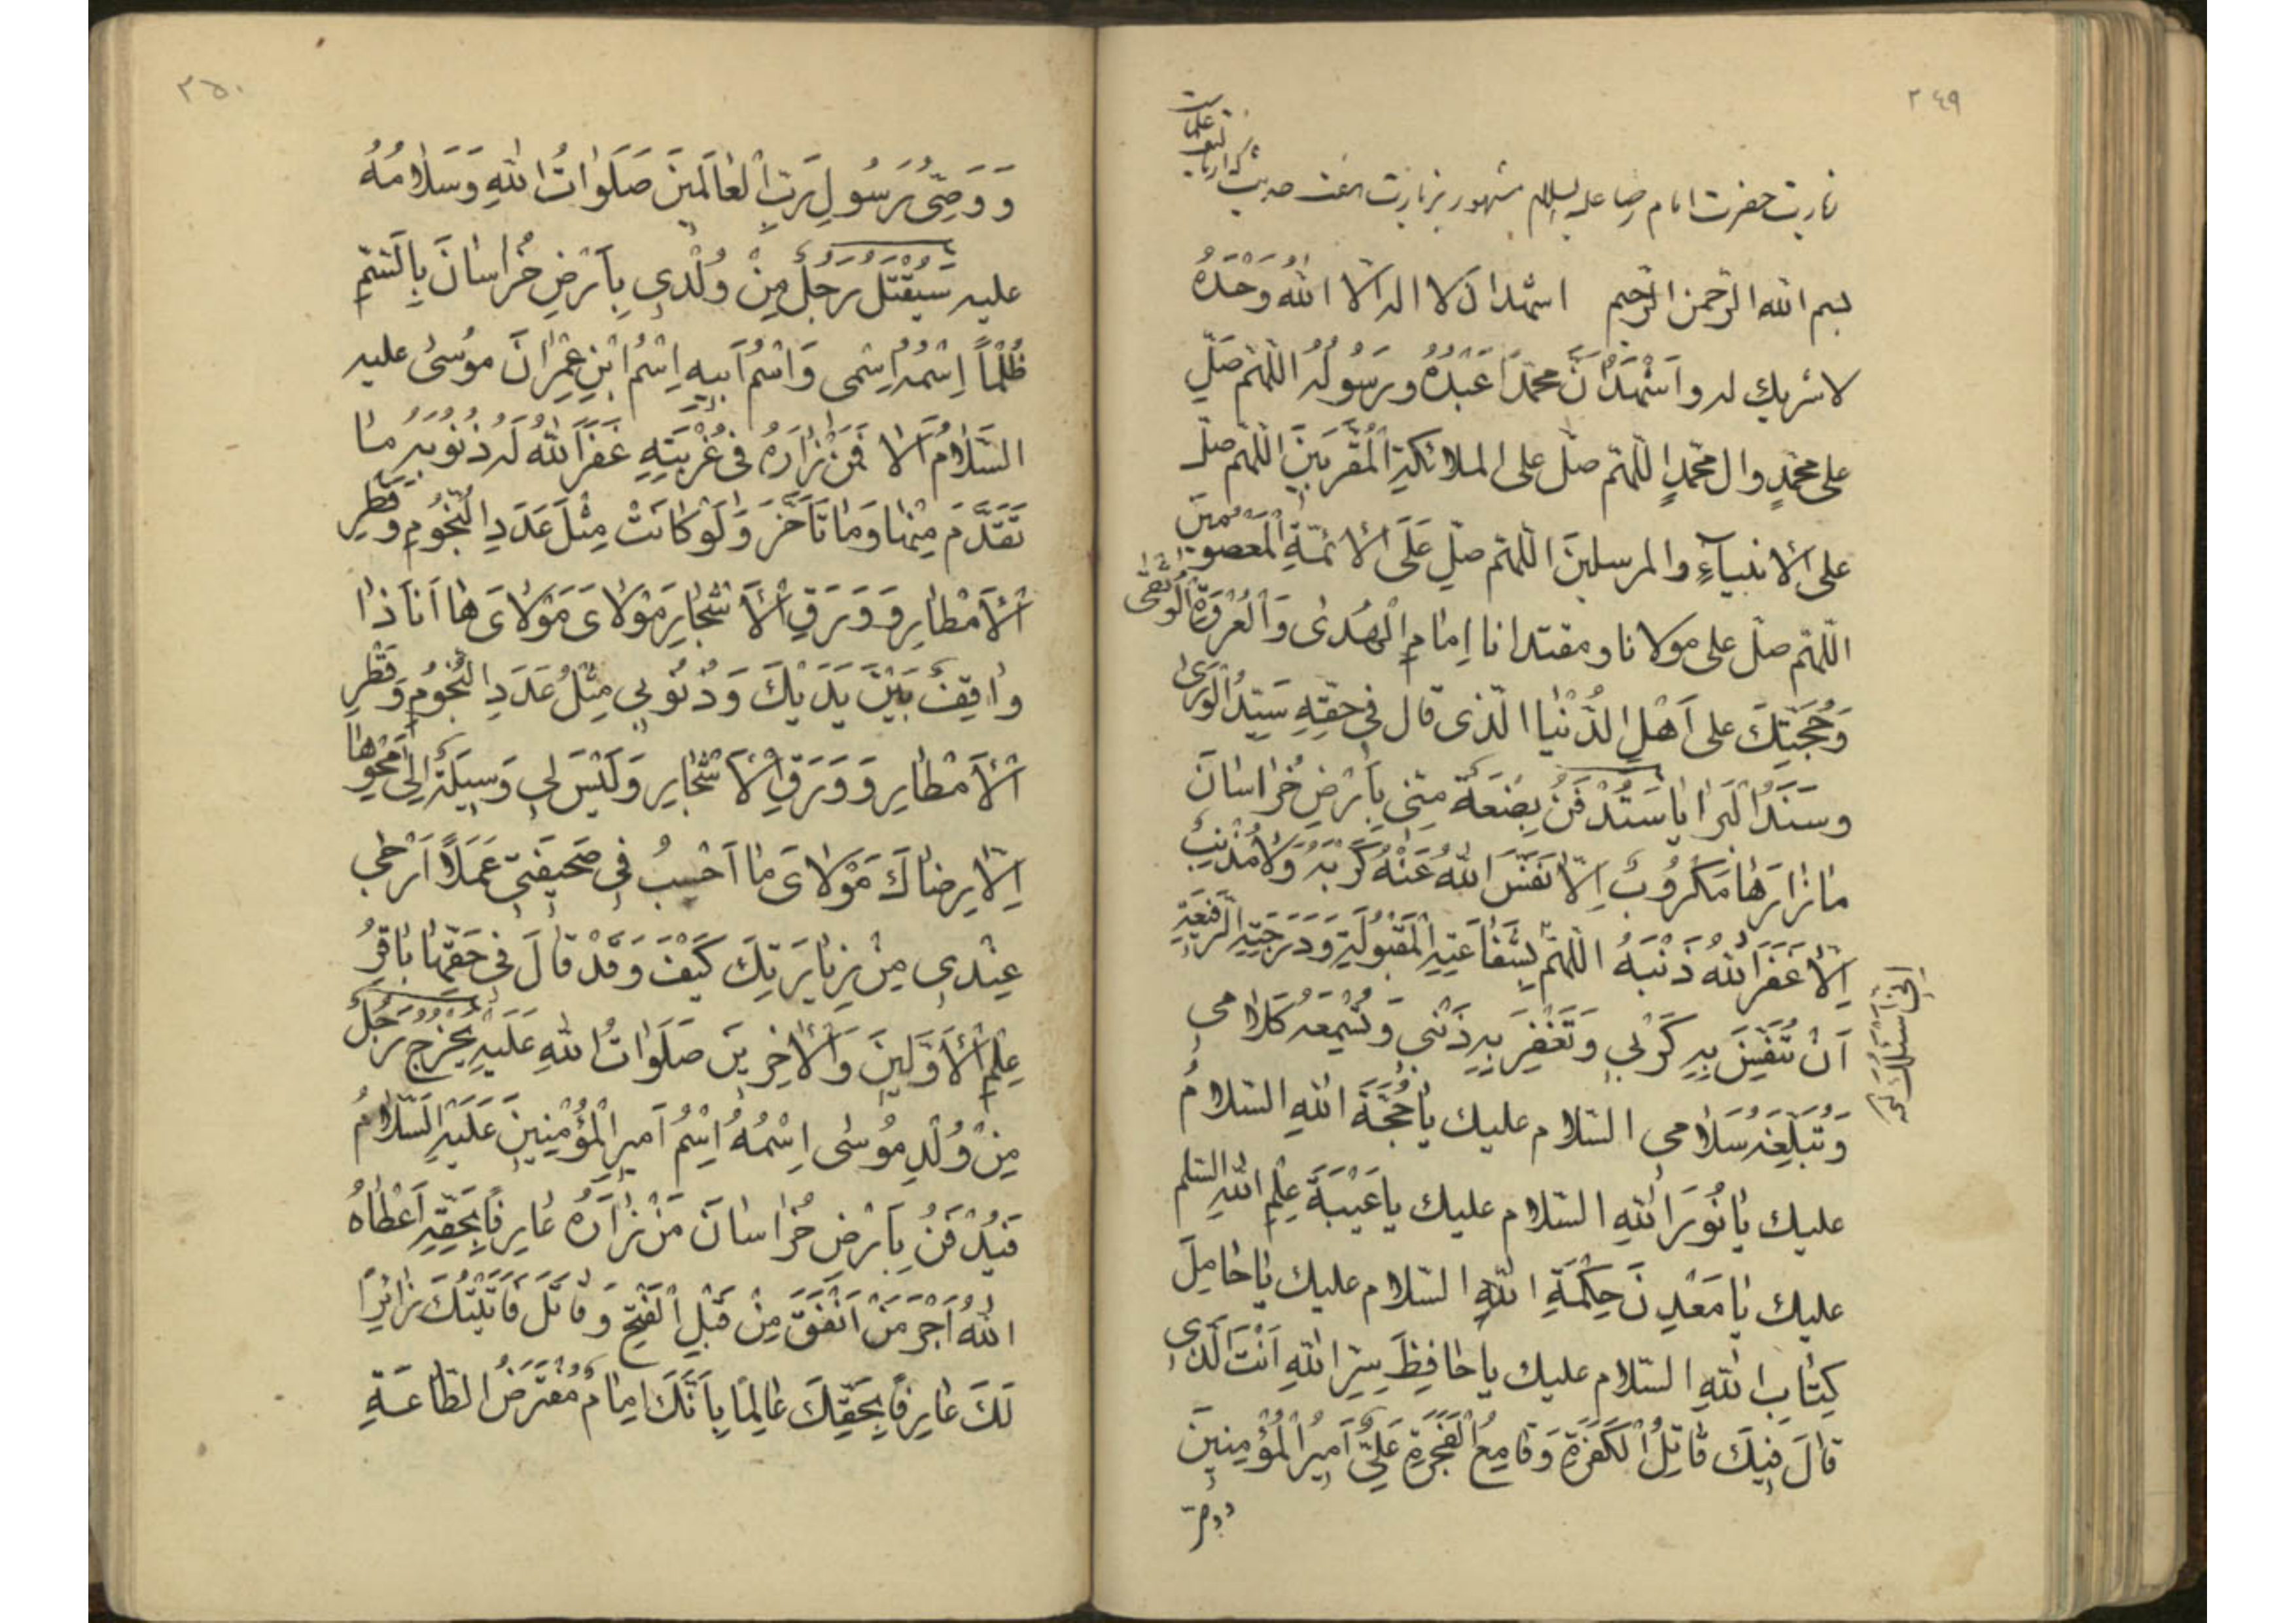 ٢٤٩
زيارت حضرت امام رضا عليه السلام مشهور بزيارت هفت حديث
بسم الله الرّحمن الرّحيم اشهد ان لا اله الّا اللهُ وَحْدَهُ
لا شريك له و اَشْهَدُ اَنَّ محمّداً عَبْدُهُ و رَسُولُهُ اللّهمّ صَلِّ
على محمّدٍ وال محمّدٍ اللّهمّ صلّ على الملائكةِ الْمُقَرَّبينَ اللّهمّ صلّ
على الأنبياءِ والمرسلينَ اللّهمّ صلِّ عَلَى الأئمّةِ الْمَعصومينَ
اللّهمّ صلّ على مولانا ومقتدانا اِمامِ الْهُدىٰ وَالْعُرْوَةِ الْوُثْقىٰ
وَحُجَّتِكَ على اَهْلِ الدُّنْيا الّذى قال فى حَقِّهِ سَيّدُ الْوَرىٰ
وسَنَدُ الْبَرايا سَتُدْفَنُ بِضْعَةٌ مِنّي بِاَرْضِ خُراسانَ
مازارَها مَكْرُوبٌ اِلّا نَفَّسَ اللهُ عَنْهُ كُرْبَهُ وَلا مُذْنِبٌ
اِلّا غَفَرَ اللهُ ذَنْبَهُ اللّهمّ بِشَفاعَتِهِ الْمَقْبُولَةِ وَدَرَجَتِهِ الرَّفيعَةِ
اِنّي اَسْئَلُكَ
اَنْ تُنَفِّسَ بِهِ كَرْبي وَتَغْفِرَ بِهِ ذَنْبي وَتُسْمِعَهُ كَلامي
وَتُبَلِّغَهُ سَلامي السّلام عليك يا حُجَّةَ اللهِ السّلامُ
عليك يا نُورَ اللهِ السّلام عليك يا عَيْبَةَ عِلْمِ اللهِ السّلم
عليك يا مَعْدِنَ حِكْمَةِ اللهِ السّلام عليك يا حامِلَ
كِتابِ اللهِ السّلام عليك يا حافِظَ سِرِّ اللهِ اَنْتَ الَّذى
قالَ فيكَ قاتِلُ الْكَفَرَةِ وَقامِعُ الْفَجَرَةِ عَلِيٌّ اَميرُ الْمُؤْمِنينَ
ووصيّ
٢٥٠
وَوَصِيُّ رَسُولِ رَبِّ الْعالَمينَ صَلَواتُ اللهِ وَسَلامُهُ
عليه سَيُقْتَلُ رَجُلٌ مِنْ وُلْدي بِاَرْضِ خُراسانَ بِالسَّمِّ
ظُلْماً اِسْمُهُ اِسْمى وَاسْمُ اَبيهِ اِسْمُ ابْنِ عِمْرانَ موُسىٰ عليه
السَّلامُ اَلا فَمَنْ زارَهُ فى غُرْبَتِهِ غَفَرَ اللهُ لَهُ ذُنُوبَهُ ما
تَقَدَّمَ مِنْها وَما تَاَخَّرَ وَلَوْ كانَتْ مِثْلَ عَدَدِ النُّجُومِ وَقَطْرِ
الْاَمْطارِ وَوَرَقِ الْاَشْجارِ مَوْلاىَ مَوْلاىَ ها اَنَا ذا
واقِفٌ بَيْنَ يَدَيْكَ وَذُنُوبي مِثْلُ عَدَدِ النُّجُومِ وَقَطْرِ
الْاَمْطارِ وَوَرَقِ الْاَشْجارِ وَلَيْسَ لي وَسيلَةٌ اِلىٰ مَحْوِها
اِلّا رِضاكَ مَوْلاىَ ما اَحْسِبُ في صَحيفَتي عَمَلاً اَرْجىٰ
عِنْدي مِنْ زِيارَتِكَ كَيْفَ وَقَدْ قالَ في حَقِّها باقِرُ
عِلْمِ الْاَوَّلينَ وَالْآخِرينَ صَلَواتُ اللهِ عَلَيْهِ يَخْرُجُ رَجُلٌ
مِنْ وُلْدِ مُوسٰى اِسْمُهُ اِسْمُ اَميرِ الْمُؤْمِنينَ عَلَيْهِ السَّلامُ
فَيُدْفَنُ بِاَرْضِ خُراسانَ مَنْ زارَهُ عارِفاً بِحَقِّهِ اَعْطاهُ
اللهُ اَجْرَ مَنْ اَنْفَقَ مِنْ قَبْلِ الْفَتْحِ وَقاتَلَ فَاَتَيْتُكَ زائِراً
لَكَ عارِفاً بِحَقِّكَ عالِماً بِاَنَّكَ اِمامٌ مُفْتَرَضُ الطّاعَةِ